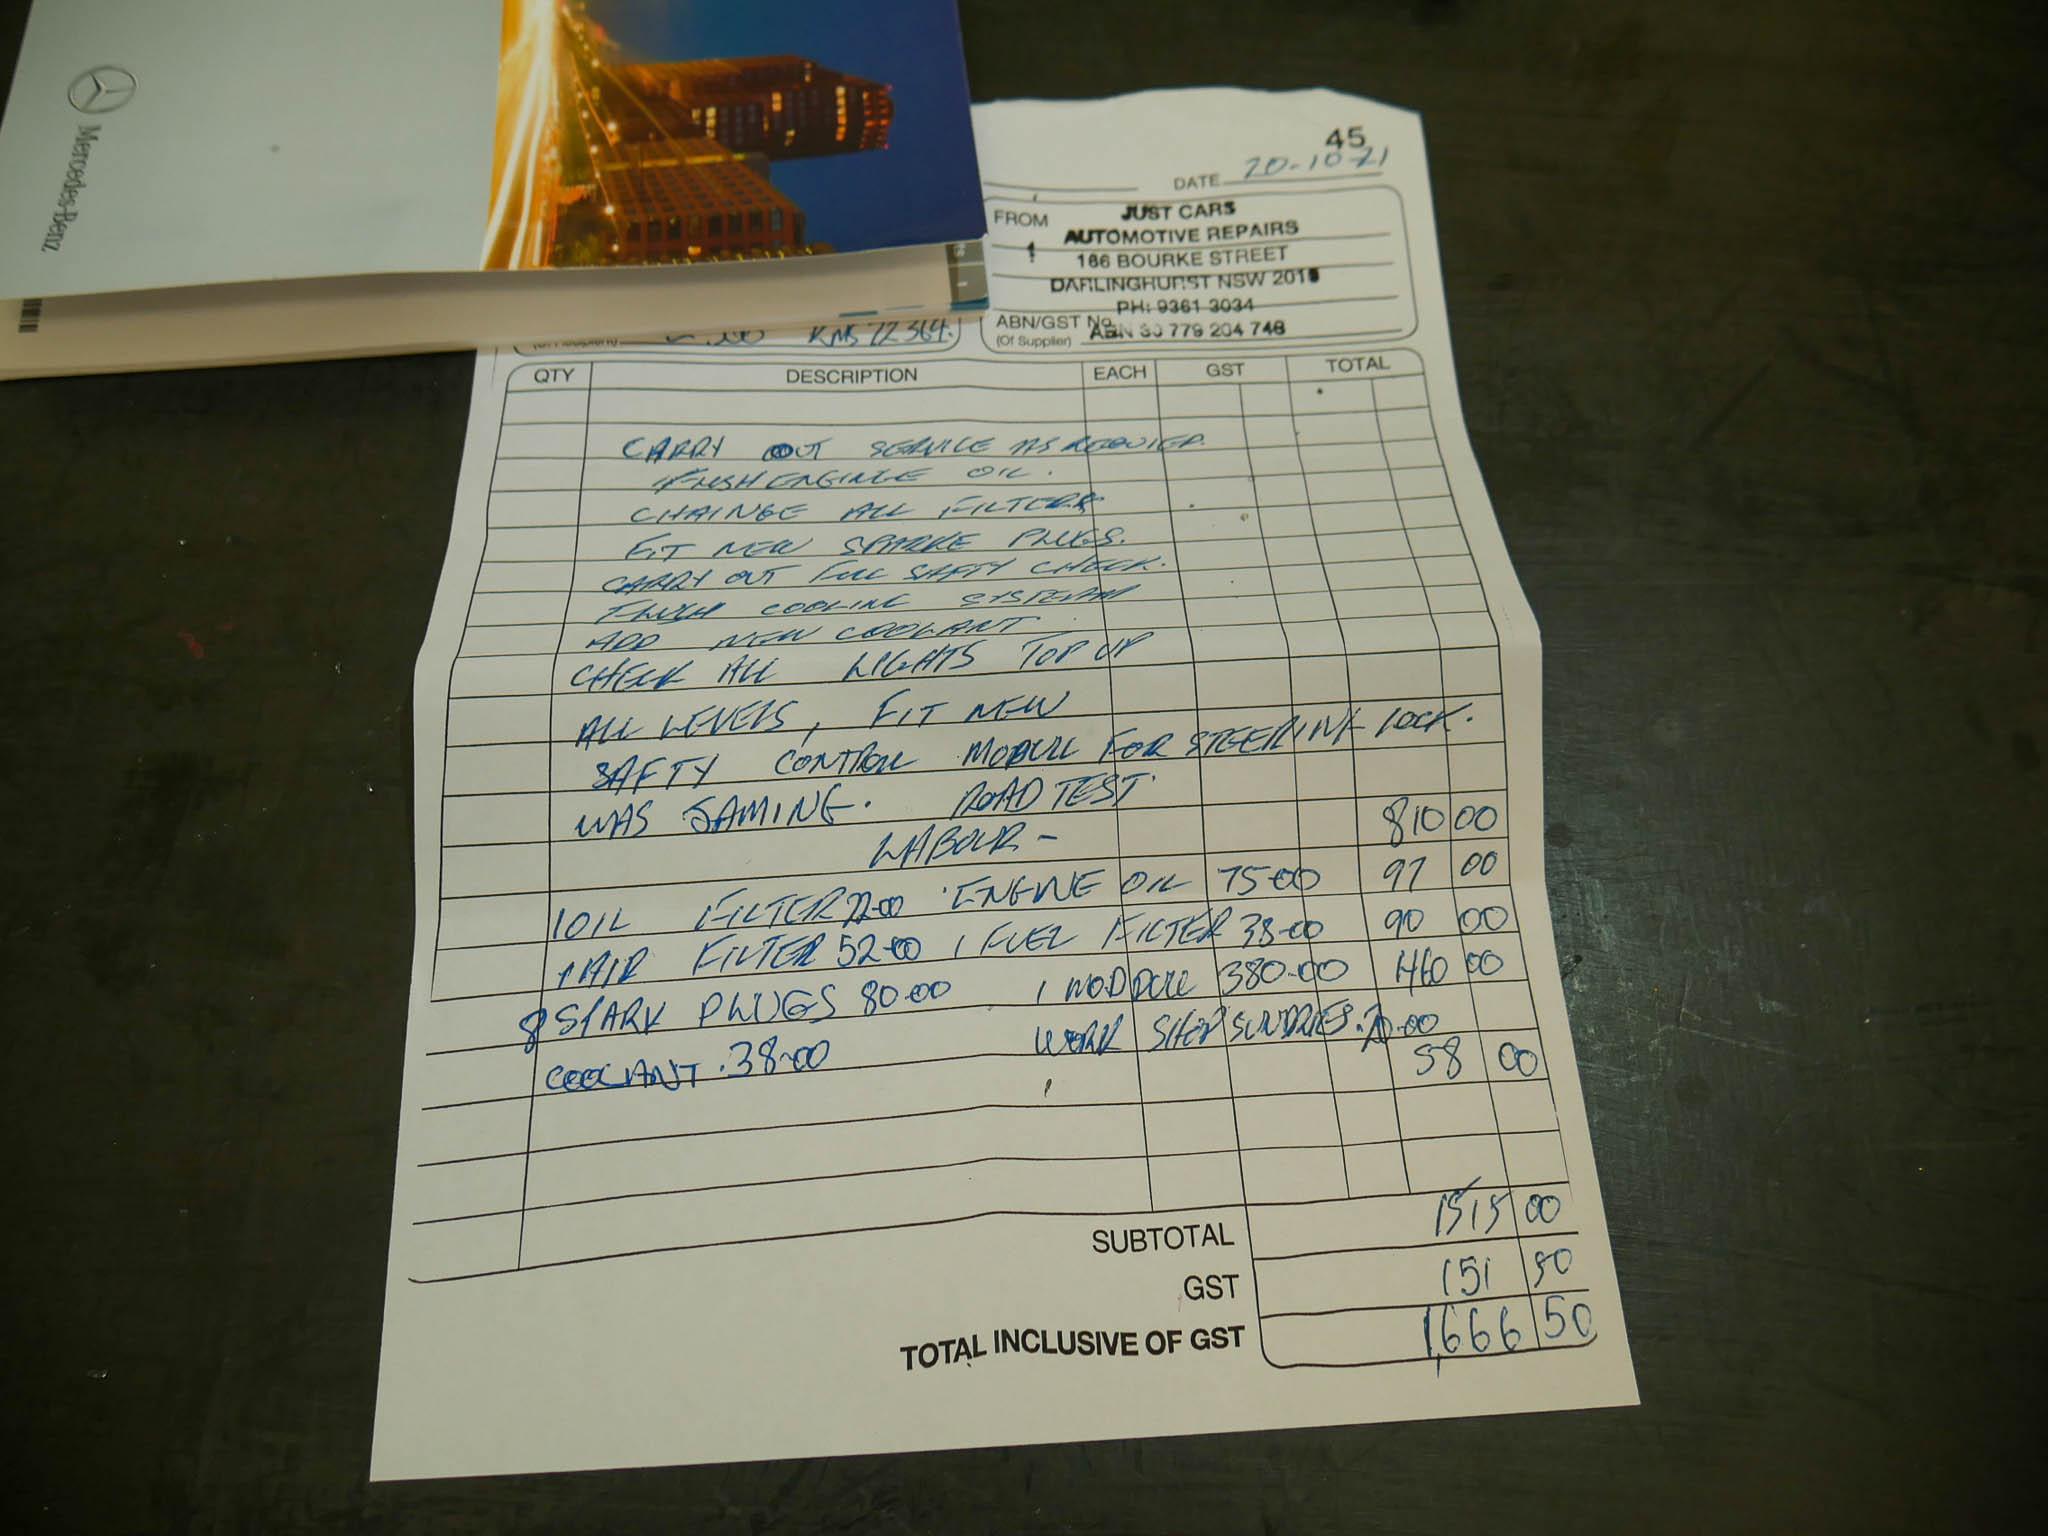 Mercedes-Benz
45
DATE 20-10-21
FROM
JUST CARS
AUTOMOTIVE REPAIRS
166 BOURKE STREET
DARLINGHURST NSW 2010
PH: 9361 3034
ABN/GST No.
(Of Supplier)
ABN 30 779 204 748
KMS 72364.
QTY DESCRIPTION EACH GST TOTAL
CARRY OUT SERVICE AS REQUIED.
ENGINE OIL.
CHAINGE ALL FILTERS
FIT NEW SPARKE PLUGS.
CARRY OUT FULL SAFTY CHECK.
COOLING SYSTEM
ADD NEW COOLANT.
CHECK ALL LIGHTS TOP UP
ALL LEVELS, FIT NEW
SAFTY CONTROL MODULL FOR STEERING LOCK.
WAS JAMING. ROAD TEST.
LABOUR- 810 00
1 OIL FILTER 22-00 ENGINE OIL 75-00 97 00
1 AIR FILTER 52-00 1 FUEL FILTER 38-00 90 00
8 SPARK PLUGS 80-00 1 MODDULL 380-00 460 00
COOLANT. 38-00 WORK SHOP SUNDRIES. 20-00
58 00
SUBTOTAL 1515 00
GST 151 50
TOTAL INCLUSIVE OF GST 1,666 50